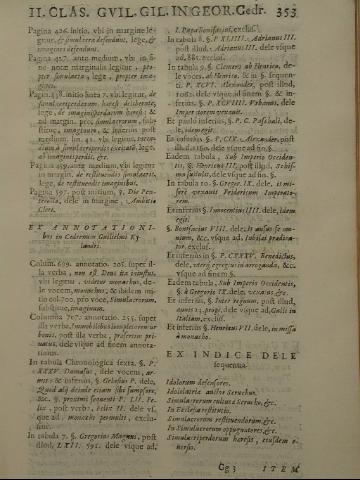 II. CLAS. GVIL. GIL. IN GEOR. Cedr. 353
Pagina 426. initio, vbi in margine le
gitur, & simulacra defendunt, lege, &
imagines defendunt.
Pagina 457. ante medium, vbi in fi-
ne note marginalis legitur: pro-
pter simulacra, lege, propter ima-
gines.
Pagina 458. initio litera
de
simulacrisperdendarum haeresi deliberate,
lege, de imaginibus
ad margin. pro, simulacrum, sub-
stitue, imaginum, & inferius post
medium lin. 41. vbi legitur,
lege,
de imaginis perditis, &c.
Pagina 459. ante medium, vbi legitur
in margin. de restituendis simulacris,
lege, de restituendis imaginibus.
Pagina 597. post initium, §. Die Pen-
tecosta, dele in margine, Ambitio
Cleri.
EX ANNOTATIONI-
bus in Cedrenum Guillielmi Xy-
landri.
Colum. 609. annotatio. 205. super il-
la verba, non est Deus ita iniustus,
vbi legitur, videtur monachus, de-
le vocem, monachus; & ibidem ini-
tio col. 700. pro voce, Simulacrorum,
substitue, imaginum.
Columna 707. annotatio. 255. super
illa verba, Immobilibus
bonis, post illa verba, proferrim pri-
uatus, dele vsque ad finem annota-
tionis.
In tabula Chronologica sexta, §. P.
XXXV Damasus, dele vocem, ar-
mis: & inferiùs, §. Gelasius P. dele,
Quod alij deinde etiam sibi sumpsere,
&c. §. proximi sequenti P. LII. Fe-
lix, post verba, Felix II. dele vs-
que ad, monachi permulti, exclu-
siuè.
In tabula 7. §. Gregorius Magnus, post
illud, LXII. 591. dele vsque ad,
I. Papa Bonifacius, exclus.
In tabula 8. §. P. XLIIII. Adrianus III.
post illud, Adrianus III. dele vsque
ad, 885. exclus.
In tabula 9. §. Clemens ab Henrico, de-
le voces, ab Henrico, & in §. sequen-
ti, P. XCVI. Alexander, post illud,
dele vsque ad finem §. & in-
ferius, §. P. XCVIIII. Vrbanus, dele
Imperatorem vexauit.
Et paulò inferiùs, §. P. C. Paschalis, de-
le, idem egit.
Et inferiùs §. P. CIX. Alexander, post
illud
dele vsque ad fin. §.
Eadem tabula, Sub Imperio Occiden-
tis, §. Henricus III. post illud,
sustulit, dele vsque ad fin. §.
In tabula 10. §. Gregor. IX. dele, is mi-
serè vexauit Fridericum Imperato-
rem.
Et inferiùs §. Innocentius IIII. dele, idem
egit.
§. Bonifacius VIII. dele, Is
niam, &c. vsque ad, Iubilaei
tor. exclus.
Et inferiùs in §. P. CXXXV. Benedictus,
dele,
egregius in arrogando, &c.
vsque ad finem §.
Eadem tabula, Sub Imperio Occidentis,
§. à Gregorio IX. dele, vexatus, &c.
Et inferiùs, §. Inter regnum, post illud,
annis 23. propè, dele vsque ad, Galli in
Italiam, exclus.
Et inferiùs §. Henricus VII. dele, in missa
à monacho.
EX INDICE DELE
sequentia.
Idolorum defensores.
Idololatriae author Seruchus.
Simulacrorum cultus à Serucho, &c.
In Ecclesia restitutio.
Simulacrorum restituendorum, &c.
In Simulacrorum oppugnatores, &c.
Simulacriperdarum haeresis, eiusdem o-
Gg 3 ITEM